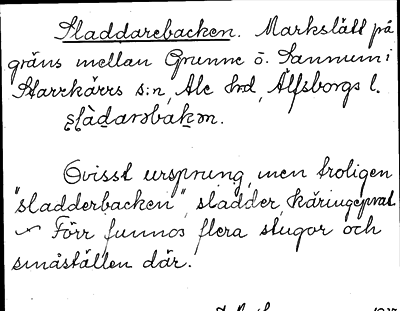 Sladdarebacken. Markslätt på
gräns mellan Grunne o. Sannum i
Starrkärrs s:n, Ale hrd, Älfsborgs l.
Ovisst ursprung, men troligen
"sladderbacken", sladder, käringprat
Förr funnos flera stugor och
småställen där.